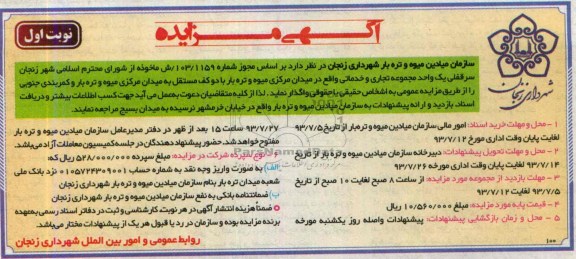 نوبت اول
آگهی مزایده
شهرداری زنجان
سازمان میادین میوه و تره بار شهرداری زنجان در نظر دارد بر اساس مجوز شماره ۱۰۳/۱۱۵۹/ش ماخوذه از شورای محترم اسلامی شهر زنجان
سرقفلی یک واحد مجموعه تجاری و خدماتی واقع در میدان مرکزی میوه و تره بار با دو کف مستقل به میدان مرکزی میوه و تره بار و کمربندی جنوبی
را از طریق مزایده عمومی به اشخاص حقیقی یا حقوقی واگذار نماید. لذا از کلیه متقاضیان دعوت به عمل می آید جهت کسب اطلاعات بیشتر و دریافت
اسناد، بازدید و ارائه پیشنهادات به سازمان میادین میوه و تره بار واقع در خیابان خرمشهر نرسیده به میدان بسیج مراجعه نمایند.
۱ - محل و مهلت خرید اسناد: امور مالی سازمان میادین میوه و تره بار از تاریخ ۹۳/۷/۵
لغایت پایان وقت اداری مورخ ۹۳/۷/۱۲
۲ - محل و مهلت تحویل پیشنهادات: دبیرخانه سازمان میادین میوه و تره بار از تاریخ
۹۳/۷/۱۴ لغایت پایان وقت اداری مورخه ۹۳/۷/۲۶
۳ - مهلت بازدید از مجموعه مورد مزایده: از ساعت ۸ صبح لغایت ۱۰ صبح از تاریخ
۹۳/۷/۵ لغایت ۹۳/۷/۱۲
۴ - قیمت پایه مورد مزایده: مبلغ ۱۰/۵۶۰/۰۰۰/۰۰۰ ریال
۵ - محل و زمان بازگشایی پیشنهادات: پیشنهادات واصله روز یکشنبه مورخه
۹۳/۷/۲۷ ساعت ۱۵ بعد از ظهر در دفتر مدیرعامل سازمان میادین میوه و تره بار
مفتوح خواهد شد. حضور پیشنهاد دهندگان در جلسه کمیسیون معاملات آزاد می باشد.
۶ - نوع سپرده شرکت در مزایده: مبلغ سپرده ۵۲۸/۰۰۰/۰۰۰ ریال که:
الف) به صورت واریز وجه نقد به شماره حساب ۰۱۰۵۷۲۴۳۰۹۰۰۱ نزد بانک ملی
شعبه میدان تره بار بنام سازمان میادین میوه و تره بار شهرداری زنجان
ب) ضمانتنامه بانکی به نفع سازمان میادین میوه و تره بار شهرداری زنجان
ضمناً هزینه انتشار آگهی در هر نوبت، کارشناسی و ثبت در دفاتر اسناد رسمی به عهده
برنده مزایده بوده و سازمان در رد یا قبول هر یک از پیشنهادات مختار می باشد.
روابط عمومی و امور بین الملل شهرداری زنجان
۱۰۰